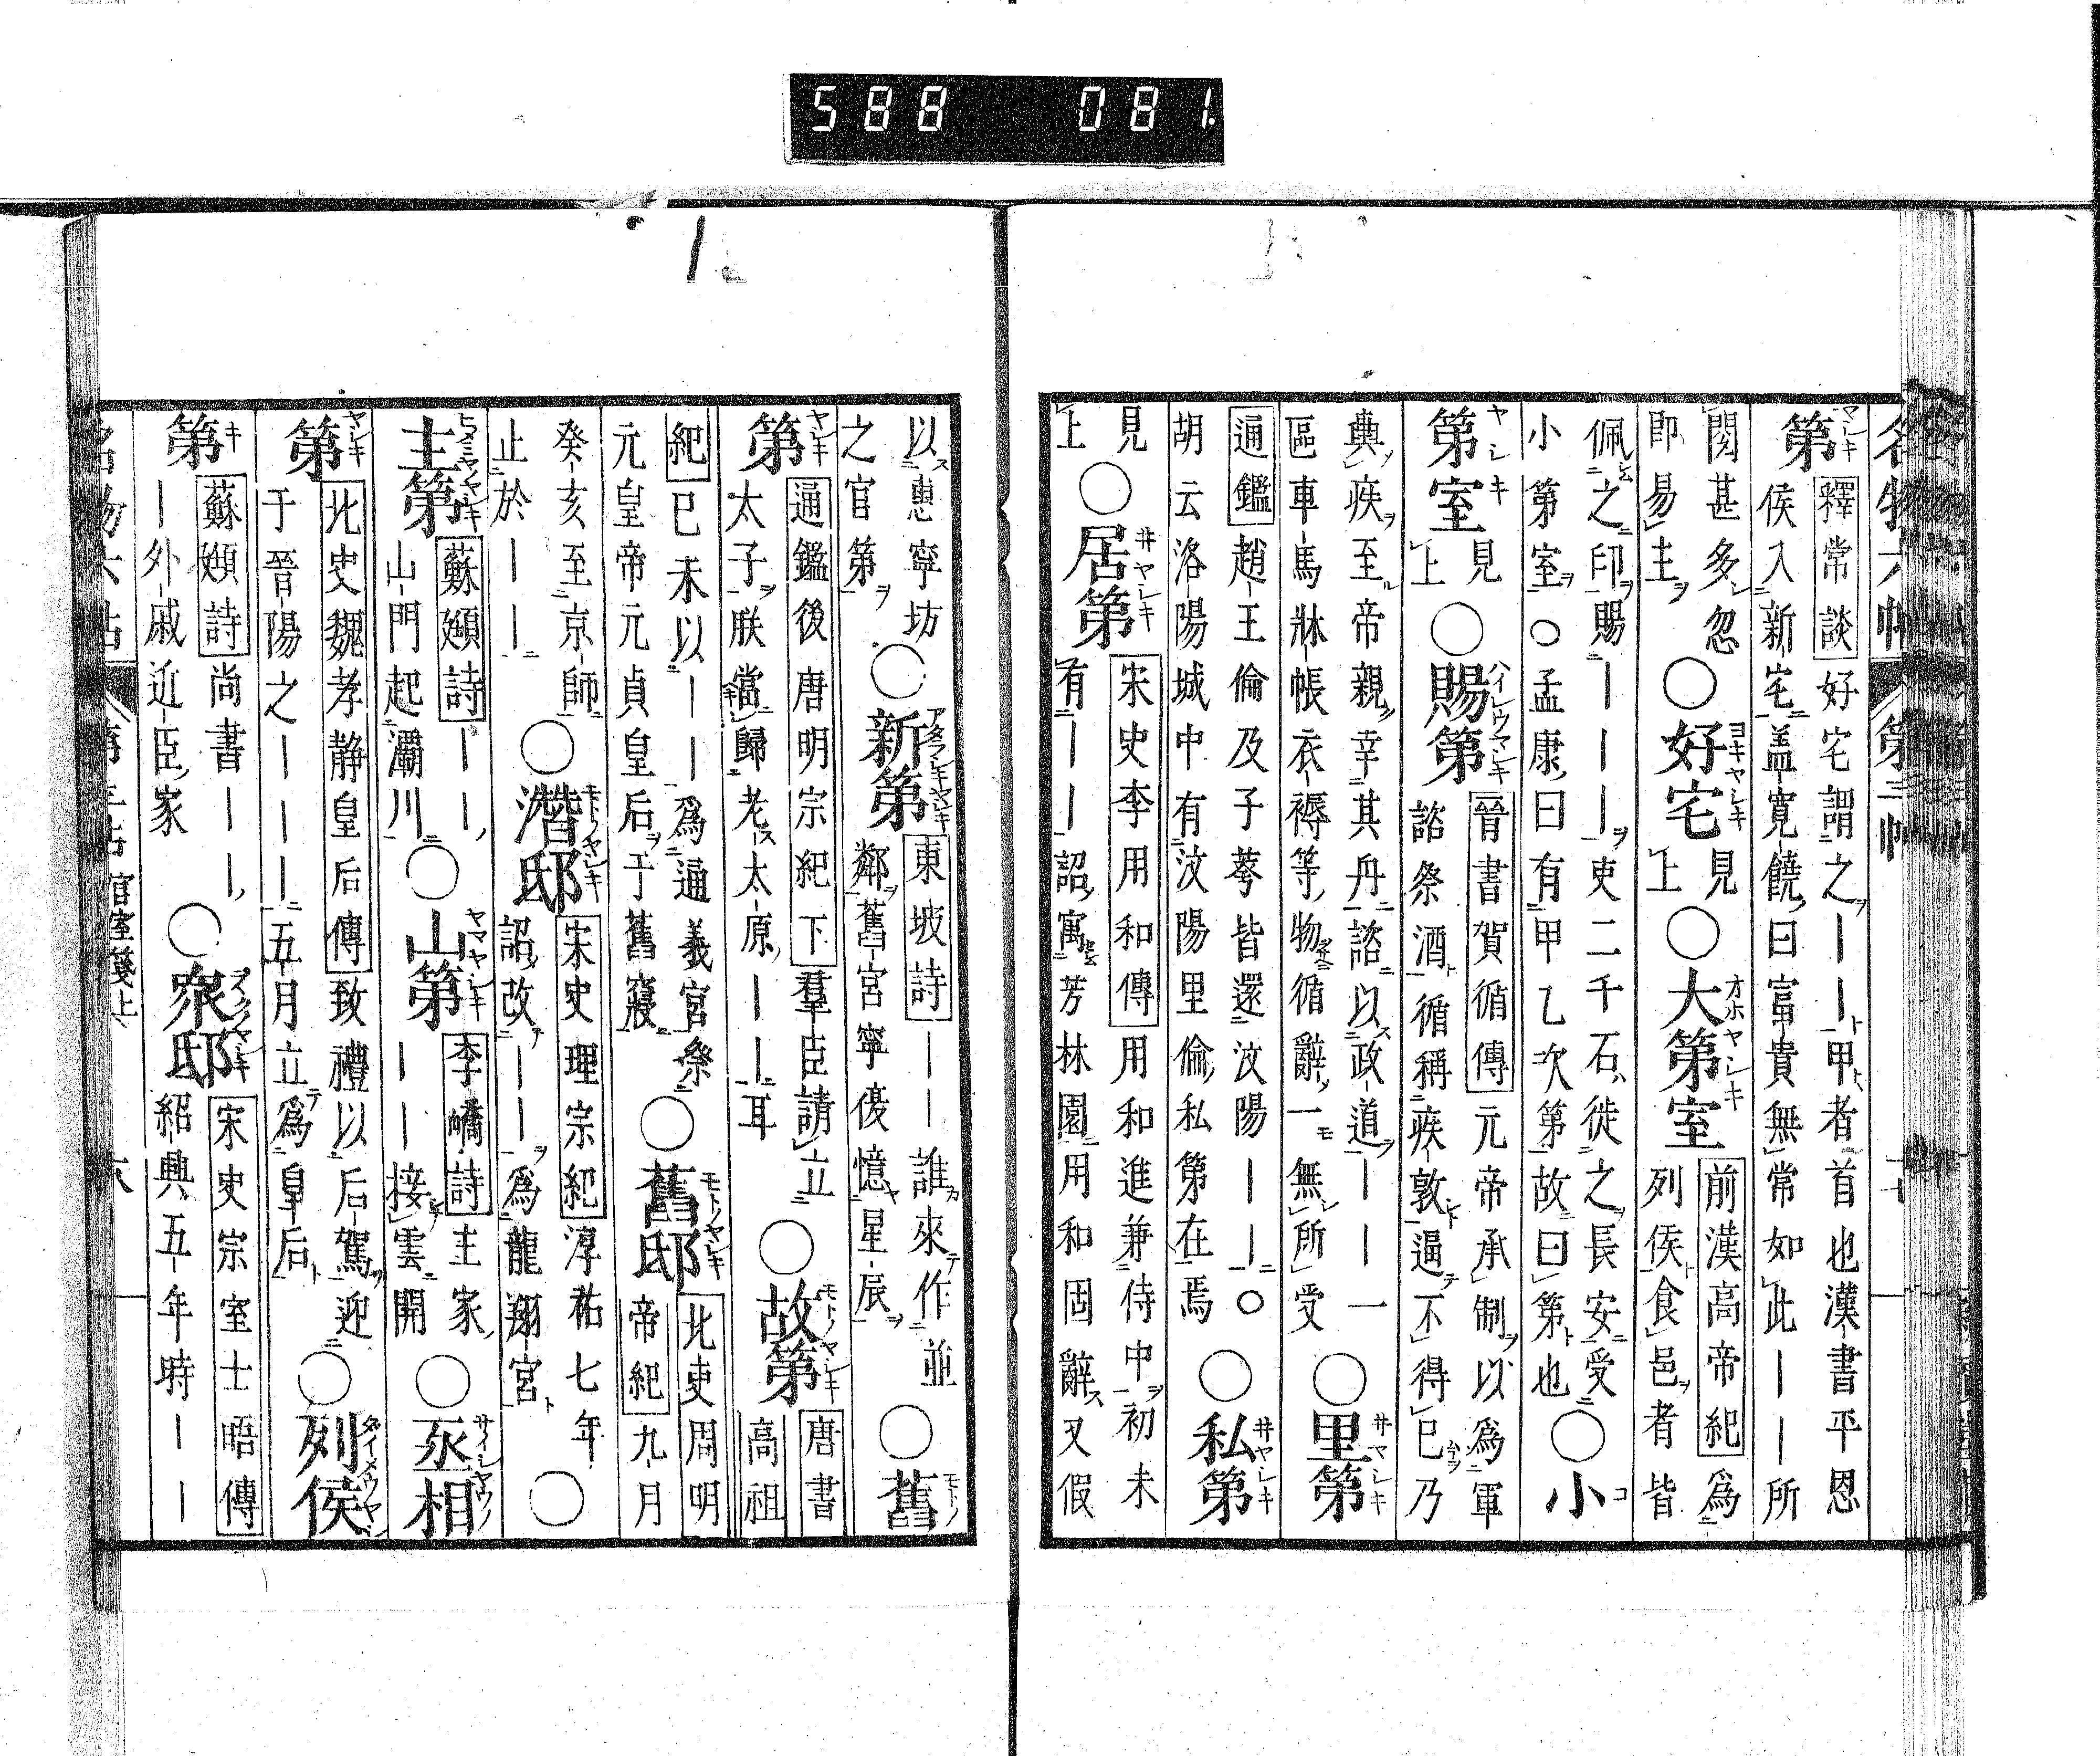 588 081.
第 釋常談 好宅謂之――甲者首也漢書平恩
侯入新宅盖寬饒曰富貴無常如此――所
閱甚多忽 ○好宅 見
卽易主 上 ○大第室 前漢高帝紀 爲
列侯食邑者皆
佩之印賜――――吏二千石徙之長安受
小第室○孟康曰有甲乙次第故曰第也 ○小
第室 見
上 ○賜第 晉書賀循傳 元帝承制以爲軍
諮祭酒循稱疾敦逼不得已乃
輿疾至帝親幸其舟諮以政道――一
區車馬牀帳衣褥等物循辭一無所受 ○里第
通鑑 趙王倫及子荂皆還汶陽――○
胡云洛陽城中有汶陽里倫私第在焉 ○私第
見
上 ○居第 宋史李用和傳 用和進兼侍中初未
有――詔寓芳林園用和固辭又假
以惠寧坊
之官第 ○新第 東坡詩 ――誰來作並
鄰舊宮寧復憶星辰 ○舊
第 通鑑後唐明宗紀下 羣臣請立
太子朕當歸老太原――耳 ○故第 唐書
高祖
紀 已未以――爲通義宮祭
元皇帝元貞皇后于舊寢 ○舊邸 北吏周明
帝紀 九月
癸亥至京師
止於―― ○潛邸 宋史理宗紀 淳祐七年
詔改――爲龍翔宮 ○
主第 蘇頲詩 ――
山門起灞川 ○山第 李嶠詩 主家
――接雲開 ○丞相
第 北史魏孝静皇后傳 致禮以后駕迎
于晉陽之――――五月立爲皇后 ○列侯
第 蘇頲詩 尚書――
―外戚近臣家 ○衆邸 宋史宗室士晤傳
紹興五年時――